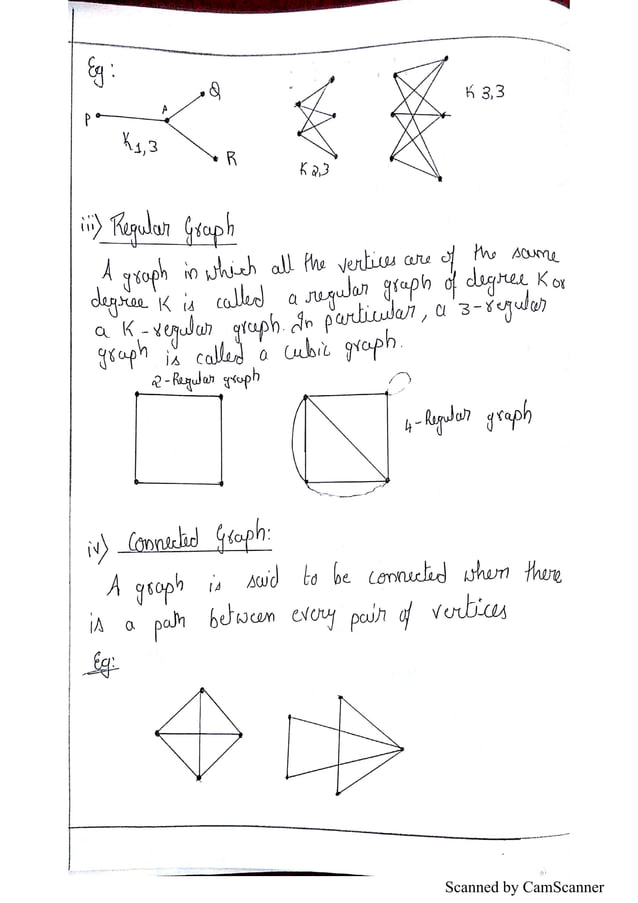 Eg:
P A Q R
K1,3
K2,3
K 3,3
iii) Regular Graph
A graph in which all the vertices are of the same
degree K is called a regular graph of degree K or
a K-regular graph. In particular, a 3-regular
graph is called a cubic graph.
2-Regular graph
4-Regular graph
iv) Connected Graph:
A graph is said to be connected when there
is a path between every pair of vertices
Eg:
Scanned by CamScanner